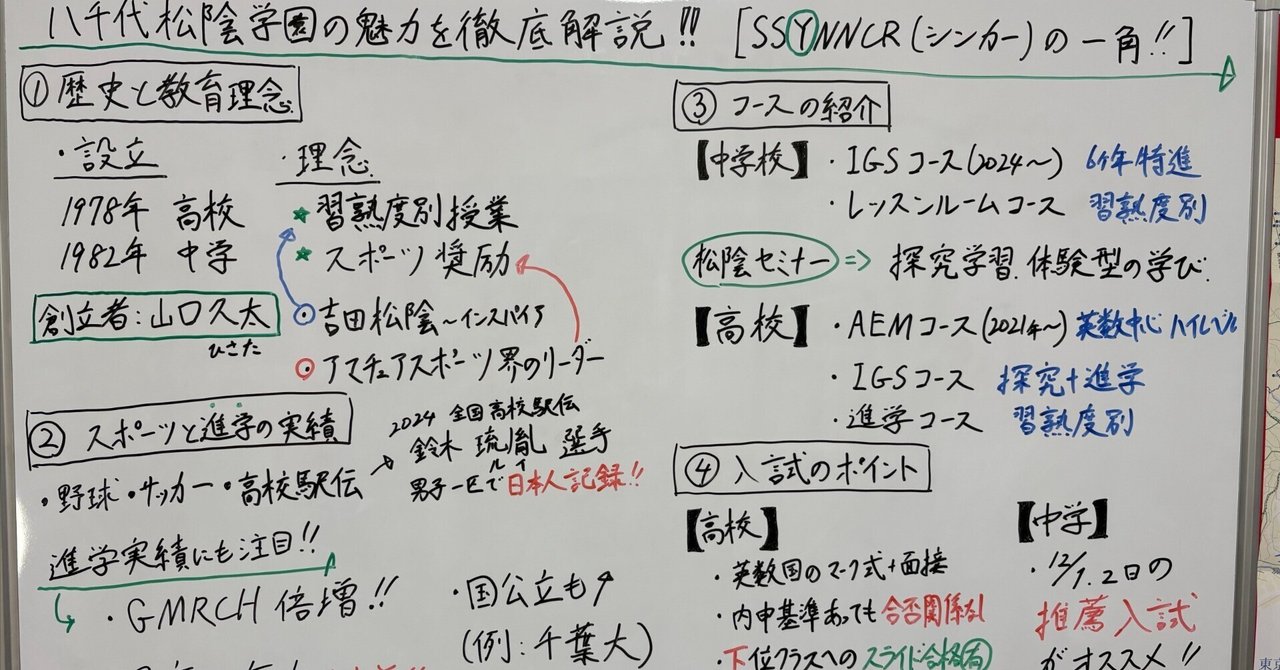 八千代松陰学園の魅力を徹底解説!! [SSYNNCR(シンカー)の一角!!]
① 歴史と教育理念
・設立
1978年 高校
1982年 中学
創立者:山口久太
ひさた
・理念
★ 習熟度別授業
★ スポーツ奨励
吉田松陰~インスパイア
アマチュアスポーツ界のリーダー
② スポーツと進学の実績
・野球・サッカー・高校駅伝
2024 全国高校駅伝
鈴木 琉胤 選手
ルイ
男子一区で日本人記録!!
進学実績にも注目!!
・GMRCH 倍増!!
・国公立も↗
(例:千葉大)
③ コースの紹介
【中学校】・IGSコース(2024~) 6ヶ年特進
・レッスンルームコース 習熟度別
松陰セミナー ⇒ 探究学習.体験型の学び.
【高校】・AEMコース(2021年~) 英数中心 ハイレベル
・IGSコース 探究+進学
・進学コース 習熟度別
④ 入試のポイント
【高校】
・英数国のマーク式+面接
・内申基準あっても合否関係なし
・下位クラスへのスライド合格有
【中学】
・12/1.2日の
推薦入試
がオススメ!!